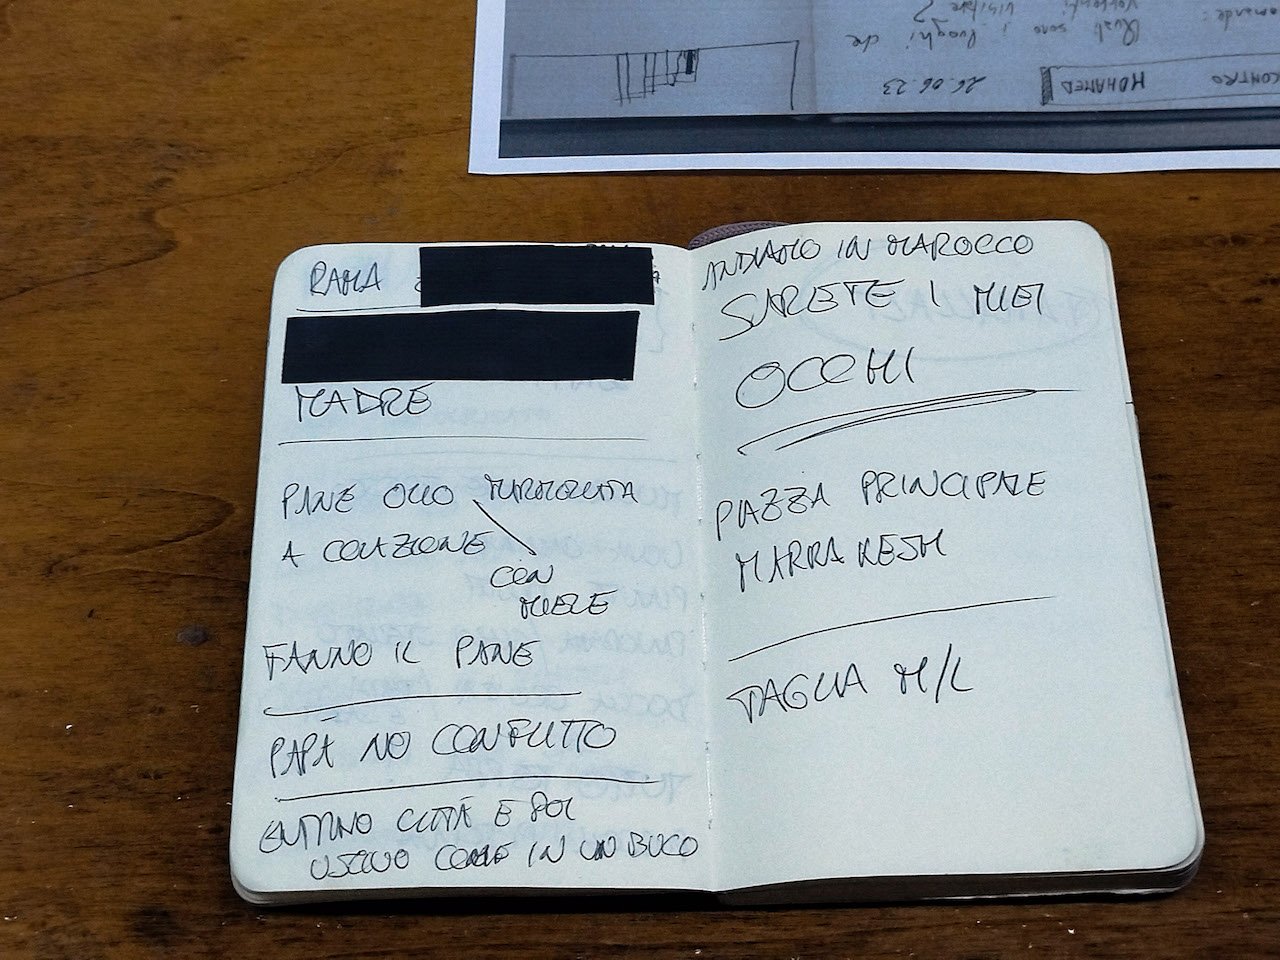 RAMA
MADRE
PANE OLIO MARMELLATA
A COLAZIONE
CON
MIELE
FANNO IL PANE
PAPÀ NO CONFLITTO
CITTÀ E POI
USCIVO COME IN UN BUCO
ANDIAMO IN MAROCCO
SARETE I MIEI
OCCHI
PIAZZA PRINCIPALE
MARRAKESH
TAGLIA M/L
CONTRO MOHAMED 26.06.23
Quali sono i luoghi che
visitare?